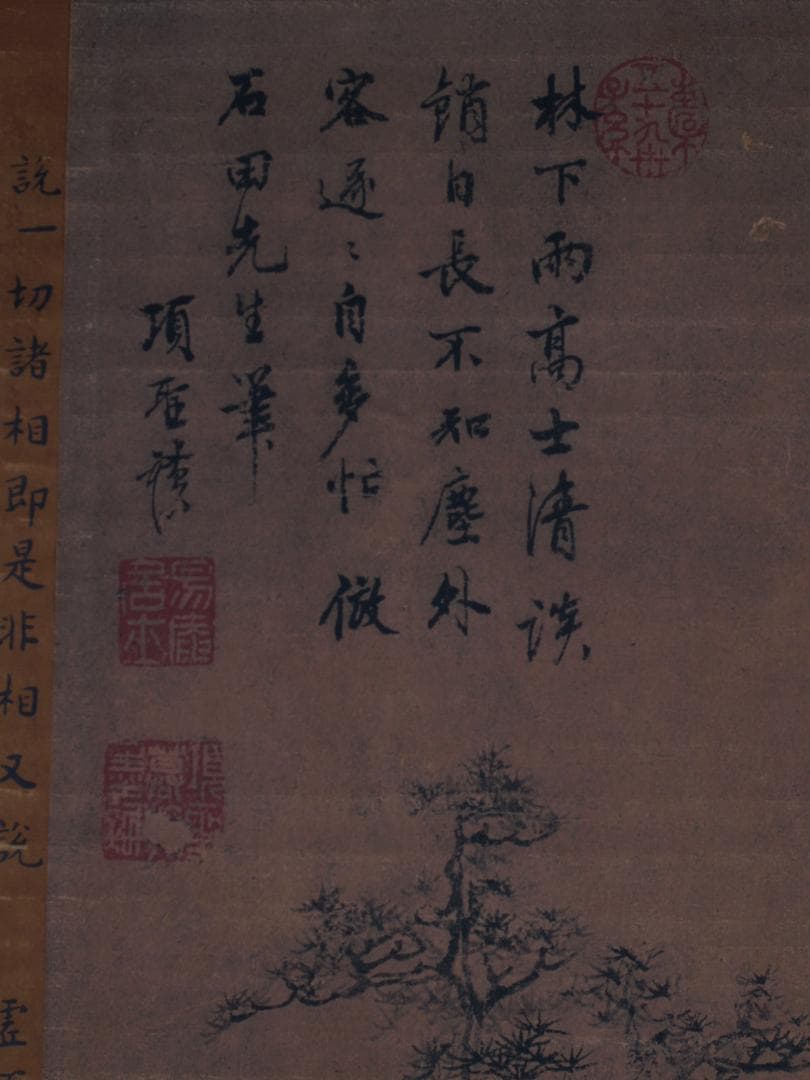 林下兩高士清談
銷日長不知塵外
客逐〻自多忙 倣
石田先生筆
項聖謨
說一切諸相即是非相又說
虛